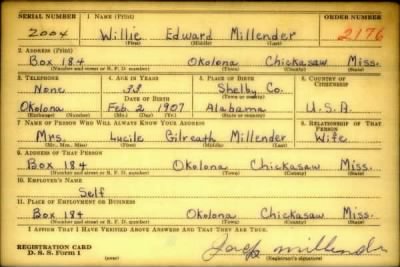 SERIAL NUMBER 1. NAME (Print) ORDER NUMBER
2004 Willie Edward Millender 2176
(First) (Middle) (Last)
2. ADDRESS (Print)
Box 184 Okolona Chickasaw Miss.
(Number and street or R. F. D. number) (Town) (County) (State)
3. TELEPHONE 4. AGE IN YEARS 5. PLACE OF BIRTH 6. COUNTRY OF CITIZENSHIP
None 33 Shelby Co.
DATE OF BIRTH
Okolona Feb. 2 1907 Alabama U.S.A.
(Exchange) (Number) (Mo.) (Day) (Yr.) (State or country)
7. NAME OF PERSON WHO WILL ALWAYS KNOW YOUR ADDRESS 8. RELATIONSHIP OF THAT PERSON
Mrs. Lucile Gilreath Millender Wife
(Mr., Mrs., Miss) (First) (Middle) (Last)
9. ADDRESS OF THAT PERSON
Box 184 Okolona Chickasaw Miss.
(Number and street or R. F. D. number) (Town) (County) (State)
10. EMPLOYER'S NAME
Self
11. PLACE OF EMPLOYMENT OR BUSINESS
Box 184 Okolona Chickasaw Miss.
(Number and street or R. F. D. number) (Town) (County) (State)
I AFFIRM THAT I HAVE VERIFIED ABOVE ANSWERS AND THAT THEY ARE TRUE.
REGISTRATION CARD
D. S. S. Form 1 (Registrar's signature)